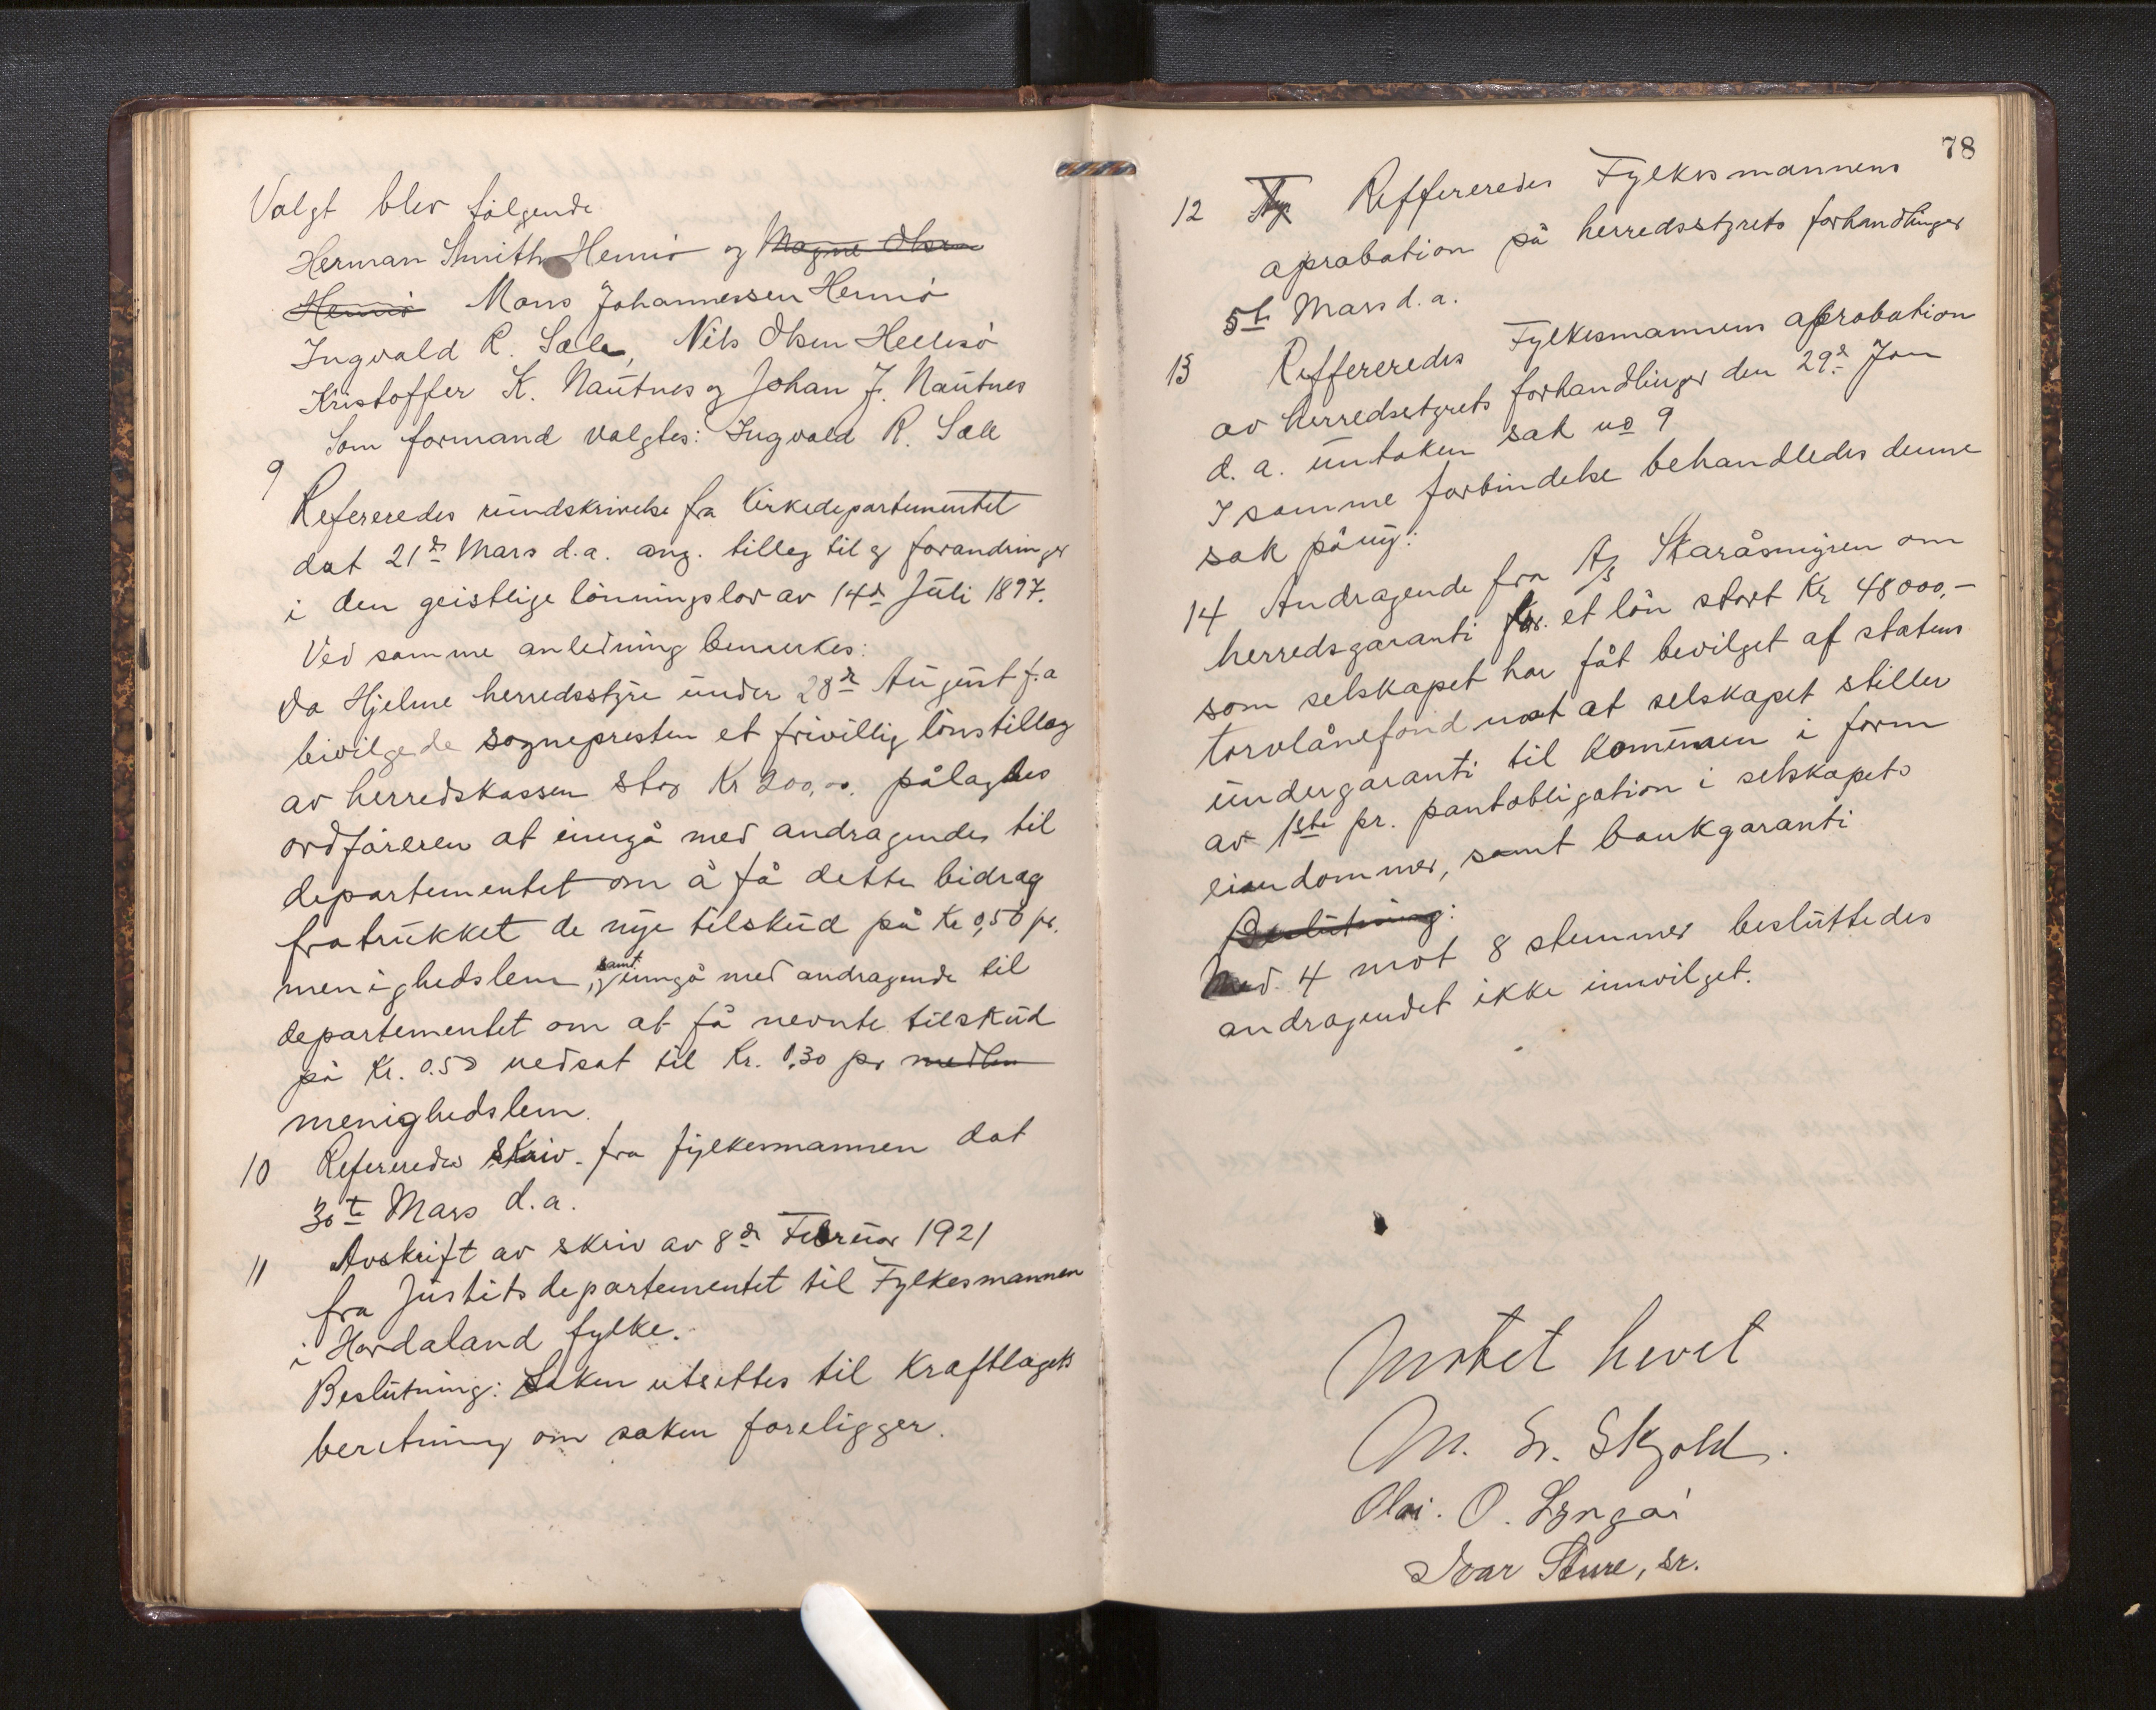 Valgt blev følgende
Herman Smith Hennø og Magne Olsen
Hennø Mons Johannessen Hennø
Ingvald R. Sæle, Nils Olsen Hellesø
Kristoffer K. Nautnes og Johan J. Nautnes
Som formand valgtes: Ingvald R. Sæle
9
Refereredes rundskrivelse fra Kirkedepartementet
dat 21de Mars d.a. ang. tilleg til og forandringer
i den geistlige lønningslov av 14de Juli 1897.
Ved samme anledning bemerkes:
Da Hjelme herredsstyre under 28de August f.a
bivilgede sognepresten et frivillig lønstillæg
av herredskassen stor Kr 200,00. pålagdes
ordføreren at inngå med andragendes til
departementet om å få dette bidrag
fratrukket de nye tilskud på Kr 0,50 pr.
menighedslem, samt inngå med andragende til
departementet om at få nevnte tilskud
på Kr. 0.50 nedsat til Kr. 0,30 pr medlem
menighedslem.
10 Refereredes skriv. fra fylkesmannen dat
30te Mars d.a.
11 Avskrift av skriv av 8de Februar 1921
fra Justitsdepartementet til Fylkesmannen
i Hordaland fylke.
Beslutning: Saken utsettes til Kraftlagets
beretning om saken foreligger.
78
12 Reffereredes Fylkesmannens
aprobation på herredsstyrets forhandlinger
5te Mars d.a.
13 Reffereredes Fylkesmannens aprobation
av herredsstyrets forhandlinger den 29de Jan
d.a. untaken sak no 9
I samme forbindelse behandledes denne
sak påny:
14 Andragende fra A/s Staråsmyren om
herredsgaranti for et lån stort Kr 48000,-
som selskapet har fåt bevilget af statens
torvlånefond mot at selskapet stiller
undergaranti til Komunen i form
av 1ste pr. pantobligation i selskapets
eiendommer, samt bankgaranti
Beslutning:
Med 4 mot 8 stemmer besluttedes
andragendet ikke innvilget.
Møtet hevet
M. Sr. Skjold.
Olai. O. Lyngøi
Ivar Sture, sr.